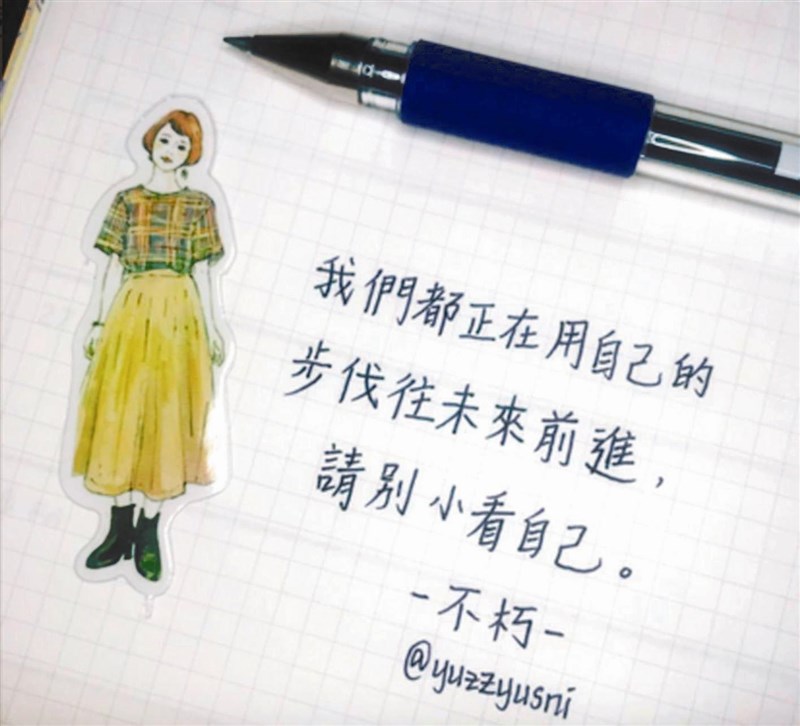 我們都正在用自己的
步伐往未來前進，
請別小看自己。
-不朽-
@yuzzyusni